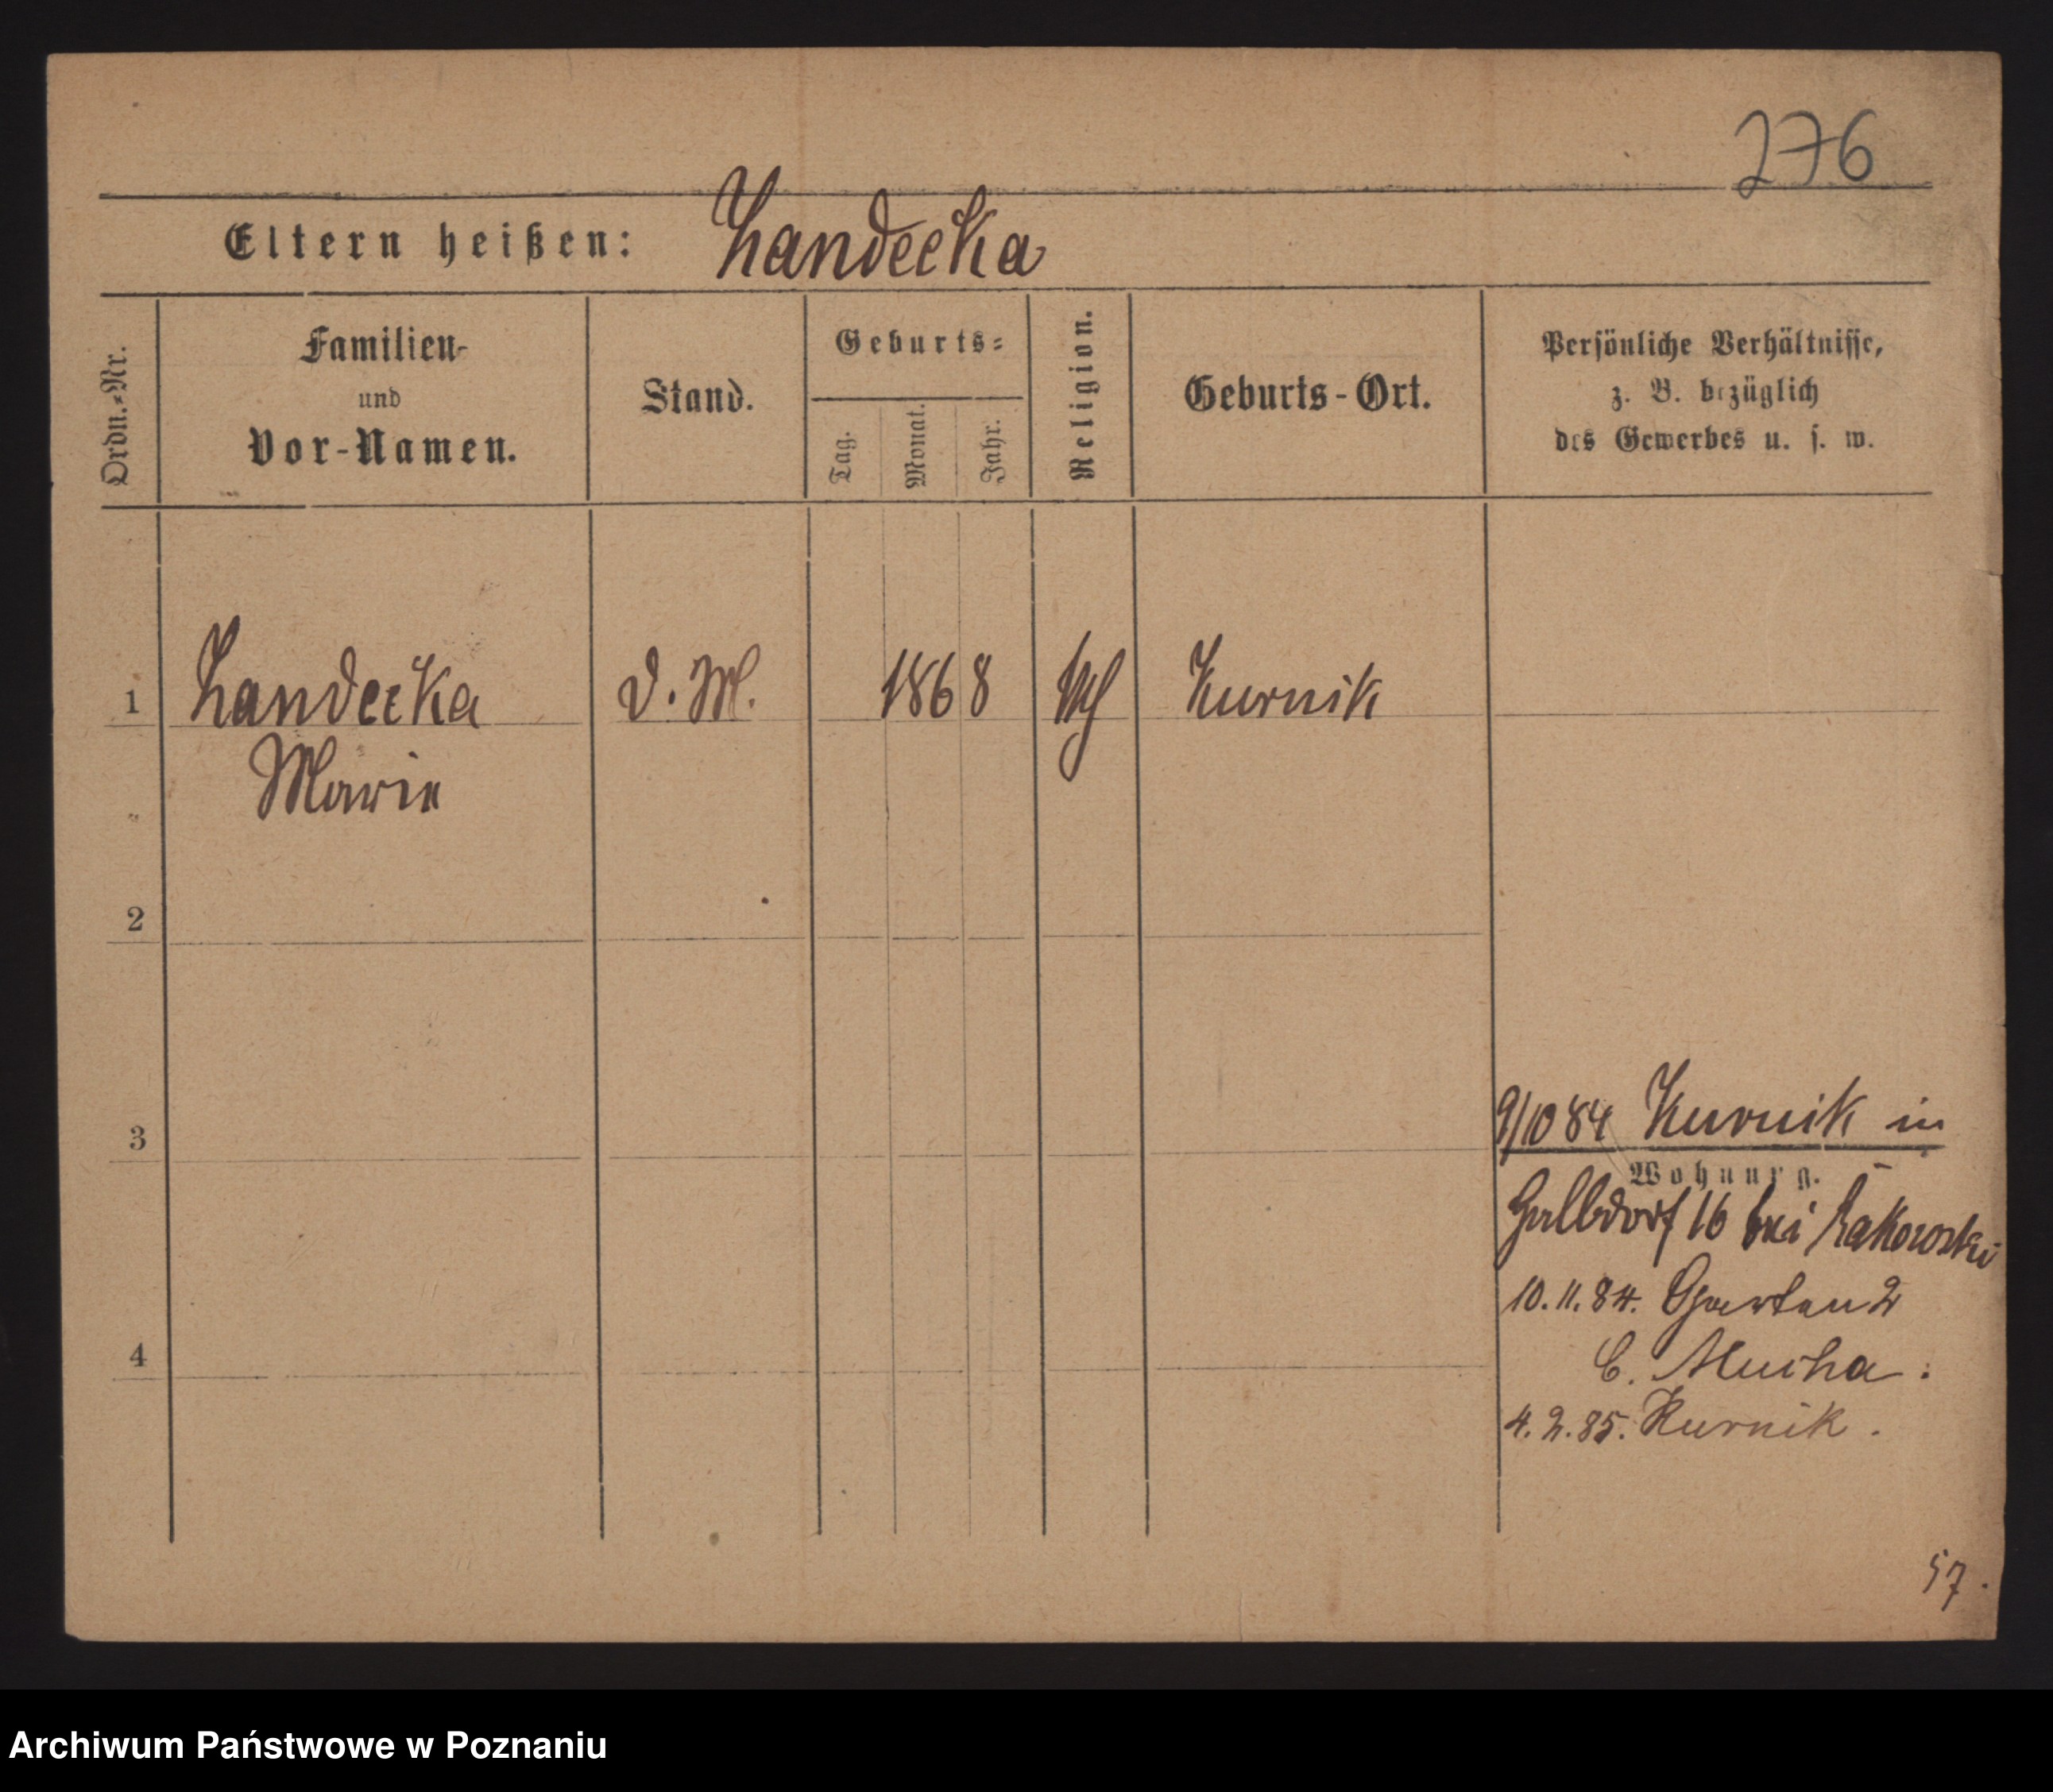 276
Eltern heißen: Landecka
Ordn.-Nr.
Familien-
und
Vor-Namen.
Stand.
Geburts-
Tag.
Monat.
Jahr.
Religion.
Geburts-Ort.
Persönliche Verhältnisse,
z. B. bezüglich
des Gewerbes u. s. w.
1 Landecka d. M. 1868 Kurnik
Marie
2
3
9/10 84 Kurnik in
Wohnung.
Halbdorf 16 bei Lakowski
10.11.84. Garten 2
b. Mucha.
4
4.2.85. Kurnik.
57.
Archiwum Państwowe w Poznaniu